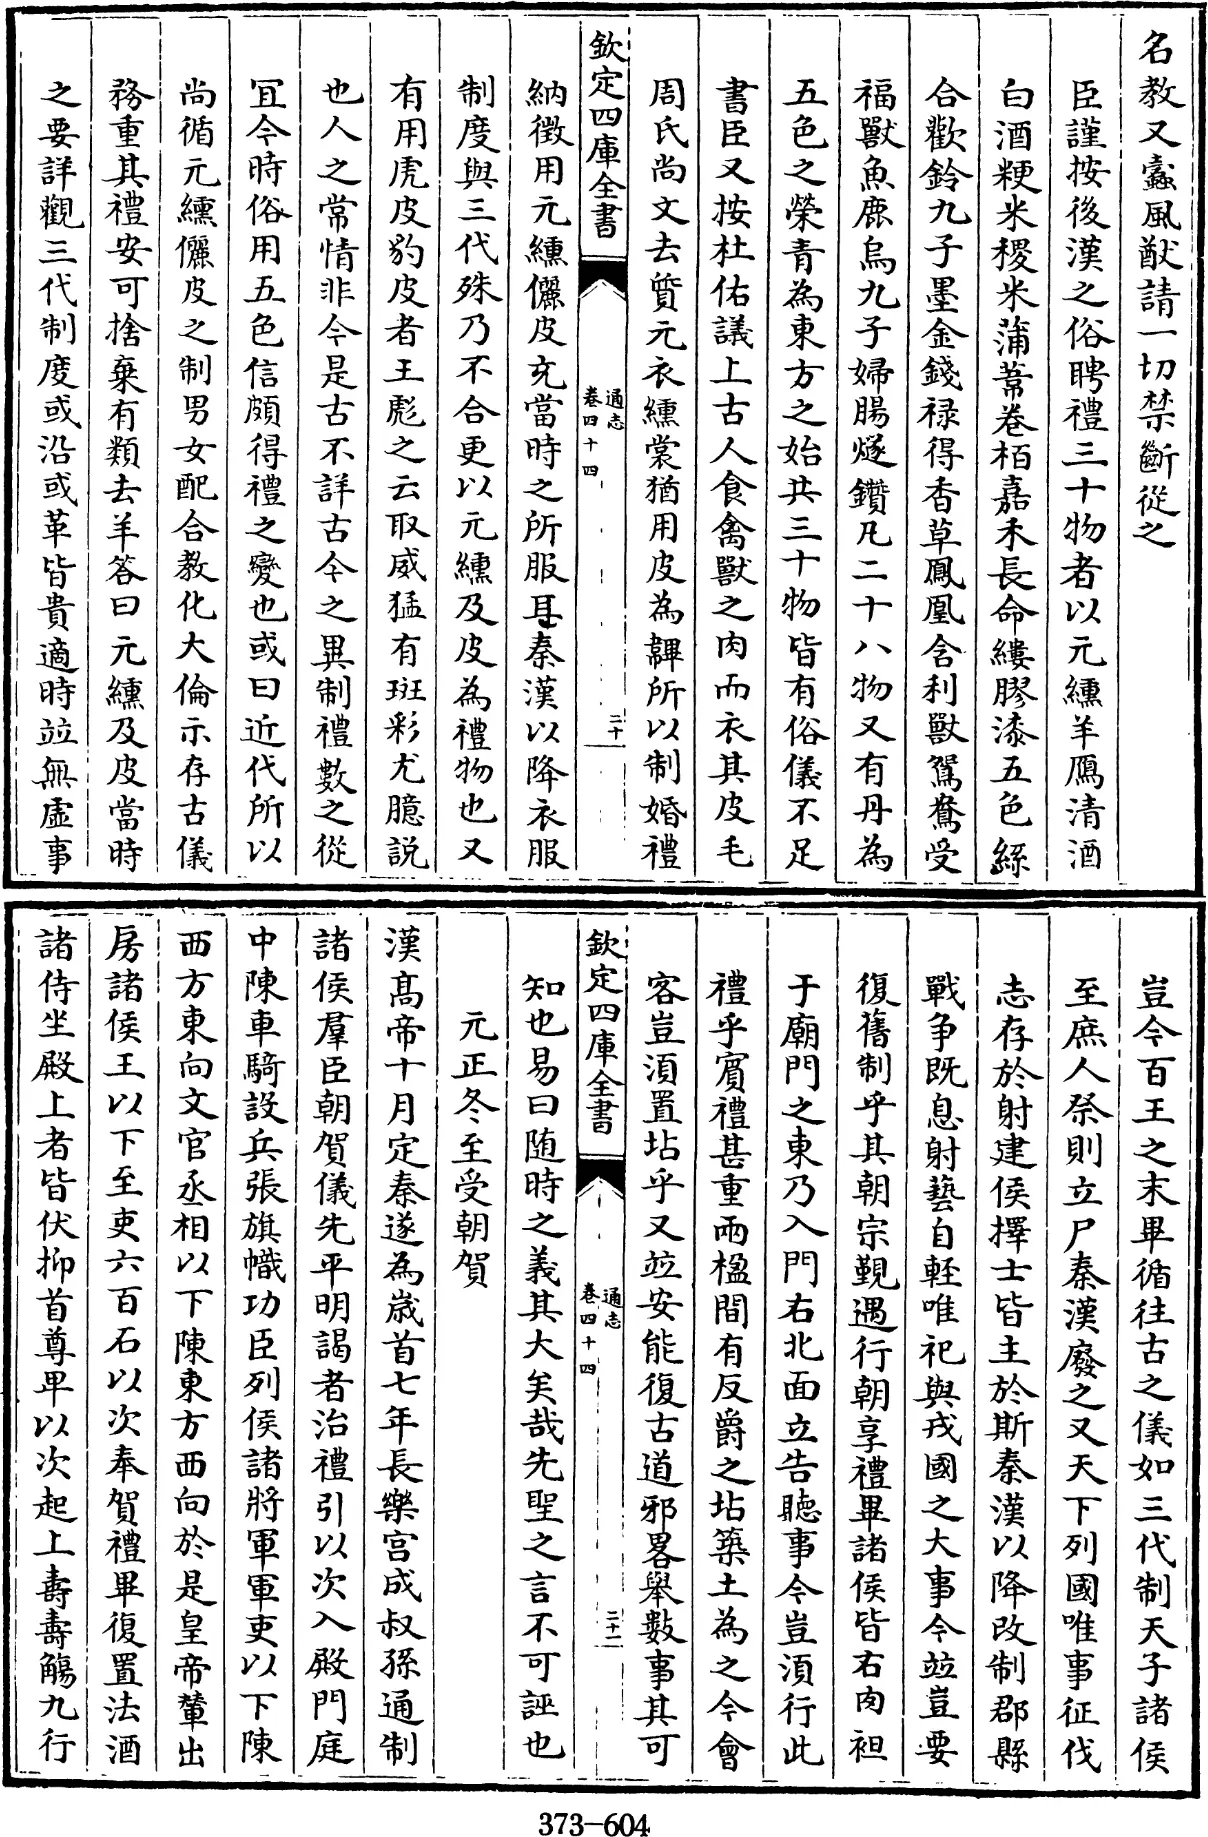 名教又蠡風猷請一切禁斷從之
臣謹按後漢之俗聘禮三十物者以元纁羊鴈清酒
白酒粳米稷米蒲葦卷栢嘉禾長命縷膠漆五色絲
合歡鈴九子墨金錢禄得香草鳳凰含利獸鴛鴦受
福獸魚鹿烏九子婦腸燧鑽凡二十八物又有丹為
五色之榮青為東方之始共三十物皆有俗儀不足
書臣又按杜佑議上古人食禽獸之肉而衣其皮毛
周氏尚文去質元衣纁裳猶用皮為韠所以制婚禮
欽定四庫全書
通志
卷四十四
二十
納徵用元纁儷皮充當時之所服耳秦漢以降衣服
制度與三代殊乃不合更以元纁及皮為禮物也又
有用虎皮豹皮者王彪之云取威猛有斑彩尤臆説
也人之常情非今是古不詳古今之異制禮數之從
宜今時俗用五色信頗得禮之變也或曰近代所以
尚循元纁儷皮之制男女配合教化大倫示存古儀
務重其禮安可捨棄有類去羊答曰元纁及皮當時
之要詳觀三代制度或沿或革皆貴適時竝無虛事
豈今百王之末畢循往古之儀如三代制天子諸侯
至庶人祭則立尸秦漢廢之又天下列國唯事征伐
志存於射建侯擇士皆主於斯秦漢以降改制郡縣
戰争既息射藝自輕唯祀與戎國之大事今竝豈要
復舊制乎其朝宗覲遇行朝享禮畢諸侯皆右肉袒
于廟門之東乃入門右北面立告聽事今豈須行此
禮乎賔禮甚重兩楹間有反爵之坫築土為之今會
客豈須置坫乎又竝安能復古道邪畧舉數事其可
欽定四庫全書
通志
卷四十四
二十一
知也易曰随時之義其大矣哉先聖之言不可誣也
元正冬至受朝賀
漢髙帝十月定秦遂為歲首七年長樂宮成叔孫通制
諸侯羣臣朝賀儀先平明謁者治禮引以次入殿門庭
中陳車騎設兵張旗幟功臣列侯諸將軍軍吏以下陳
西方東向文官丞相以下陳東方西向於是皇帝輦出
房諸侯王以下至吏六百石以次奉賀禮畢復置法酒
諸侍坐殿上者皆伏抑首尊卑以次起上壽壽觴九行
373-604